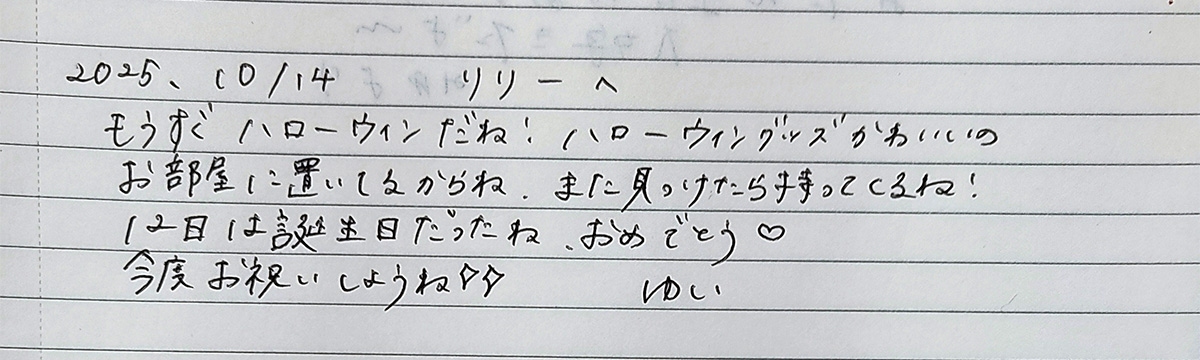 2025、10/14 リリーへ
もうすぐハローウィンだね！ハローウィングッズかわいいの
お部屋に置いてるからね、また見つけたら持ってくるね！
12日は誕生日だったね、おめでとう♡
今度お祝いしようね☆☆ ゆい